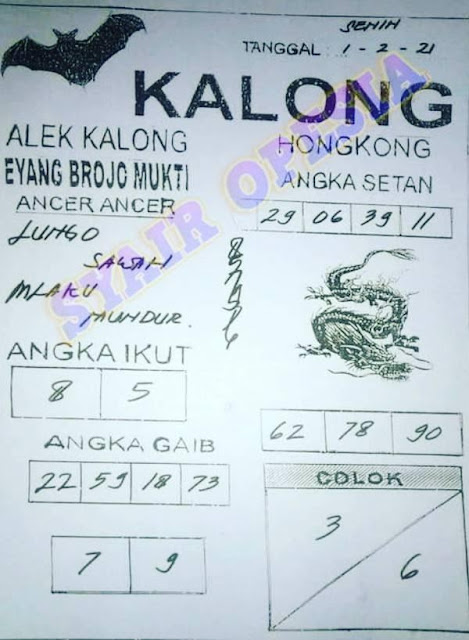 SENIN
TANGGAL : 1 - 2 - 21
KALONG
ALEK KALONG
EYANG BROJO MUKTI
ANCER ANCER
LUNGO
SAWAH
MLAKU
MUNDUR.
HONGKONG
ANGKA SETAN
29 06 39 11
ANGKA IKUT
8 5
62 78 90
ANGKA GAIB
22 59 18 73
7 9
COLOK
3
6
SYAIR OPESIA